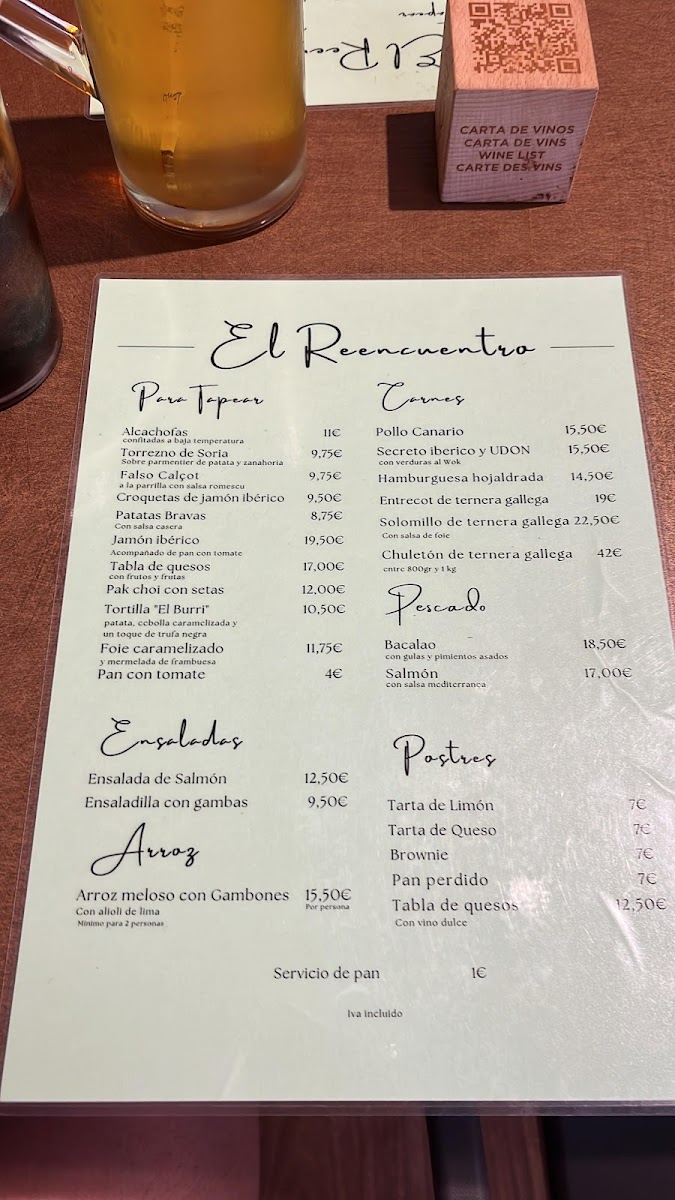 El Reen
Tapear
CARTA DE VINOS
CARTA DE VINS
WINE LIST
CARTE DES VINS
El Reencuentro
Para Tapear
Alcachofas 11€
confitadas a baja temperatura
Torrezno de Soria 9,75€
Sobre parmentier de patata y zanahoria
Falso Calçot 9,75€
a la parrilla con salsa romescu
Croquetas de jamón ibérico 9,50€
Patatas Bravas 8,75€
Con salsa casera
Jamón ibérico 19,50€
Acompañado de pan con tomate
Tabla de quesos 17,00€
con frutos y frutas
Pak choi con setas 12,00€
Tortilla "El Burri" 10,50€
patata, cebolla caramelizada y
un toque de trufa negra
Foie caramelizado 11,75€
y mermelada de frambuesa
Pan con tomate 4€
Ensaladas
Ensalada de Salmón 12,50€
Ensaladilla con gambas 9,50€
Arroz
Arroz meloso con Gambones 15,50€
Con alioli de lima Por persona
Mínimo para 2 personas
Carnes
Pollo Canario 15,50€
Secreto iberico y UDON 15,50€
con verduras al Wok
Hamburguesa hojaldrada 14,50€
Entrecot de ternera gallega 19€
Solomillo de ternera gallega 22,50€
Con salsa de foie
Chuletón de ternera gallega 42€
entre 800gr y 1 kg
Pescado
Bacalao 18,50€
con gulas y pimientos asados
Salmón 17,00€
con salsa mediterranea
Postres
Tarta de Limón 7€
Tarta de Queso 7€
Brownie 7€
Pan perdido 7€
Tabla de quesos 12,50€
Con vino dulce
Servicio de pan 1€
Iva incluido